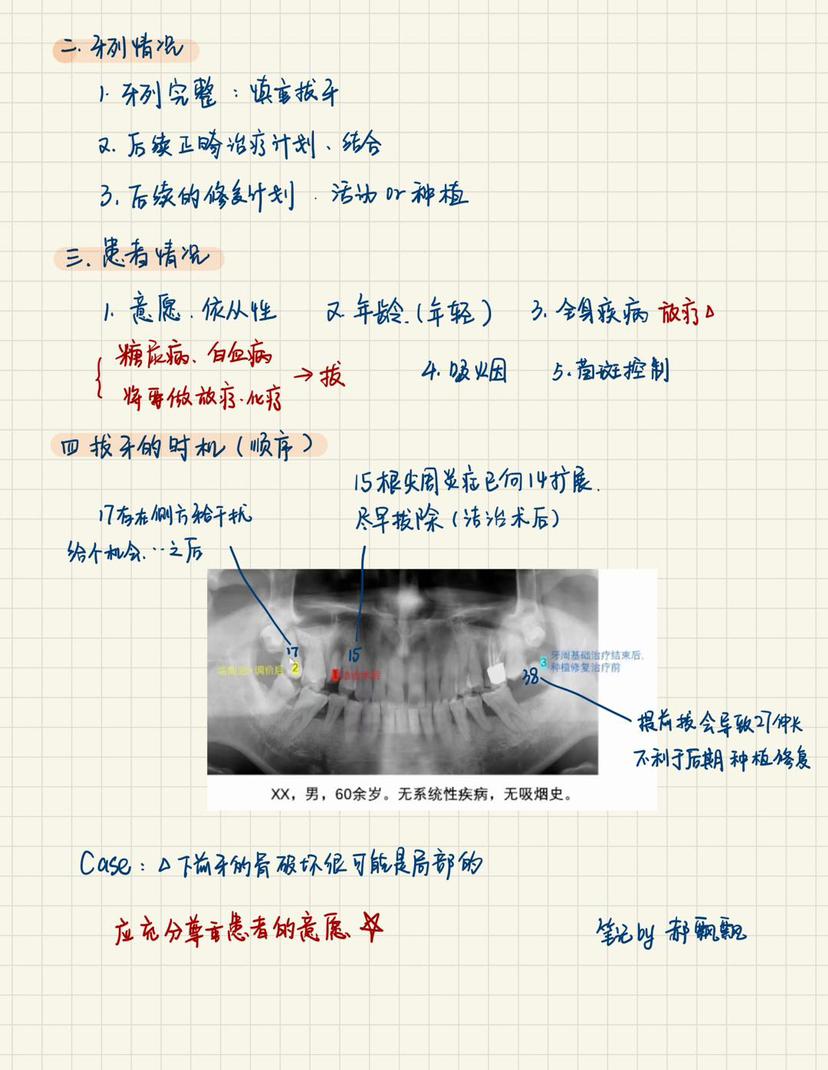 二.牙列情况
1.牙列完整：慎重拔牙
2.后续正畸治疗计划、结合
3.后续的修复计划.活动or种植
三.患者情况
1.意愿.依从性 2.年龄.(年轻) 3.全身疾病 放疗△
糖尿病、白血病
将要做放疗.化疗 →拔
4.吸烟 5.菌斑控制
四 拔牙的时机(顺序)
15根尖周炎症已向14扩展.
尽早拔除(洁治术后)
17存在侧方𬌗干扰
给个机会...之后
17
2
15
1
洁治术后
3 牙周基础治疗结束后,
种植修复治疗前
38
提前拔会导致27伸长
不利于后期种植修复
XX，男，60余岁。无系统性疾病，无吸烟史。
Case：△下前牙的骨破坏很可能是局部的
应充分尊重患者的意愿☆
笔记by 郝飘飘